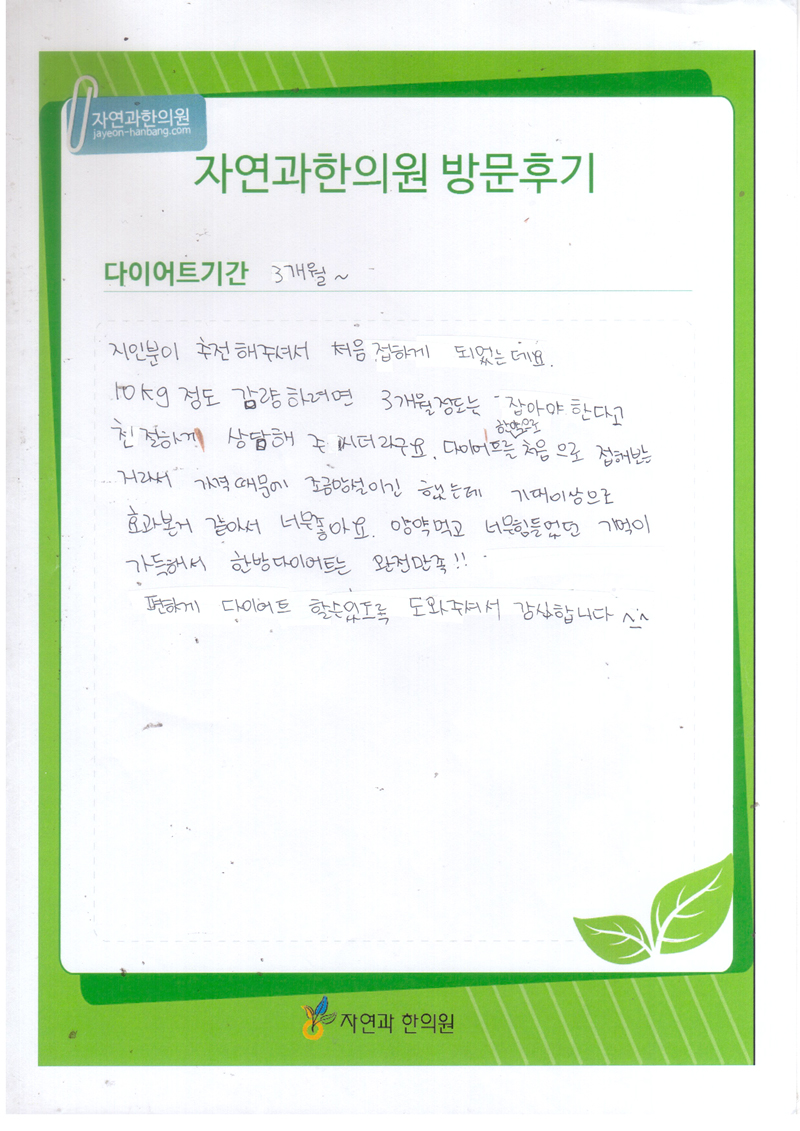 자연과한의원
jayeon-hanbang.com
자연과한의원 방문후기
다이어트기간 3개월~
지인분이 추천해주셔서 처음 접하게 되었는데요.
10kg 정도 감량하려면 3개월정도는 잡아야 한다고
친절하게 상담해 주시더라구요. 다이어트를 한약으로 처음으로 접해보는
거라서 가격때문에 조금망설이긴 했는데 기대이상으로
효과본거 같아서 너무좋아요. 양약먹고 너무힘들었던 기억이
가득해서 한방다이어트는 완전만족!!
편하게 다이어트 할수있도록 도와주셔서 감사합니다 ^_^
자연과 한의원